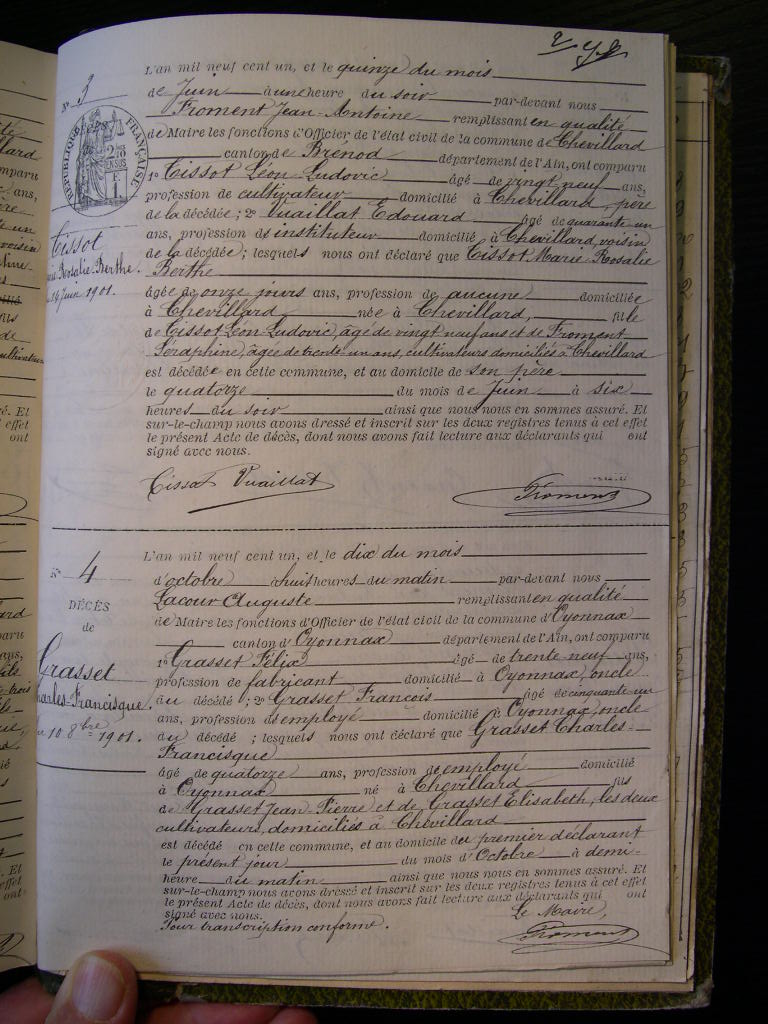 L'an mil neuf cent un, et le quinze du mois
N° 3
de Juin à une heure du soir par-devant nous
Froment Jean-Antoine remplissant en qualité
RÉPUBLIQUE FRANÇAISE
de Maire les fonctions d'Officier de l'état civil de la commune de Chevillard
canton de Brénod département de l'Ain, ont comparu
1° Tissot Léon-Ludovic âgé de vingt neuf ans,
profession de cultivateur domicilié à Chevillard, père
de la décédée; 2° Vuaillat Edouard âgé de quarante un
Tissot
ans, profession d'instituteur domicilié à Chevillard, voisin
Marie-Rosalie-Berthe.
de la décédée; lesquels nous ont déclaré que Tissot Marie-Rosalie
Berthe
14 Juin 1901.
âgée de onze jours ans, profession de aucune domiciliée
à Chevillard née à Chevillard, fille
de Tissot Léon-Ludovic, âgé de vingt neuf ans et de Froment
Séraphine, âgée de trente-un ans, cultivateurs domiciliés à Chevillard
est décédée en cette commune, et au domicile de son père
le quatorze du mois de Juin à six
heures du soir ainsi que nous nous en sommes assuré. Et
sur-le-champ nous avons dressé et inscrit sur les deux registres tenus à cet effet
le présent Acte de décès, dont nous avons fait lecture aux déclarants qui ont
signé avec nous.
Tissot Vuaillat Froment
L'an mil neuf cent un, et le dix du mois
N° 4
d'octobre à huit heures du matin par-devant nous
Lacour Auguste remplissant en qualité
DÉCÈS
de Maire les fonctions d'Officier de l'état civil de la commune d'Oyonnax
de
canton d'Oyonnax département de l'Ain, ont comparu
1° Grasset Félix âgé de trente-neuf ans,
Grasset
profession de fabricant domicilié à Oyonnax, oncle
Charles-Francisque.
du décédé; 2° Grasset François âgé de cinquante-un
ans, profession d'employé domicilié à Oyonnax, oncle
10 8bre 1901.
du décédé; lesquels nous ont déclaré que Grasset Charles-
Francisque
âgé de quatorze ans, profession d'employé domicilié
à Oyonnax né à Chevillard fils
de Grasset Jean-Pierre et de Grasset Elisabeth, les deux
cultivateurs, domiciliés à Chevillard
est décédé en cette commune, et au domicile du premier déclarant
le présent jour du mois d'Octobre à demi-
heure du matin ainsi que nous nous en sommes assuré. Et
sur-le-champ nous avons dressé et inscrit sur les deux registres tenus à cet effet
le présent Acte de décès, dont nous avons fait lecture aux déclarants qui ont
signé avec nous. Le Maire,
Pour transcription conforme. Froment